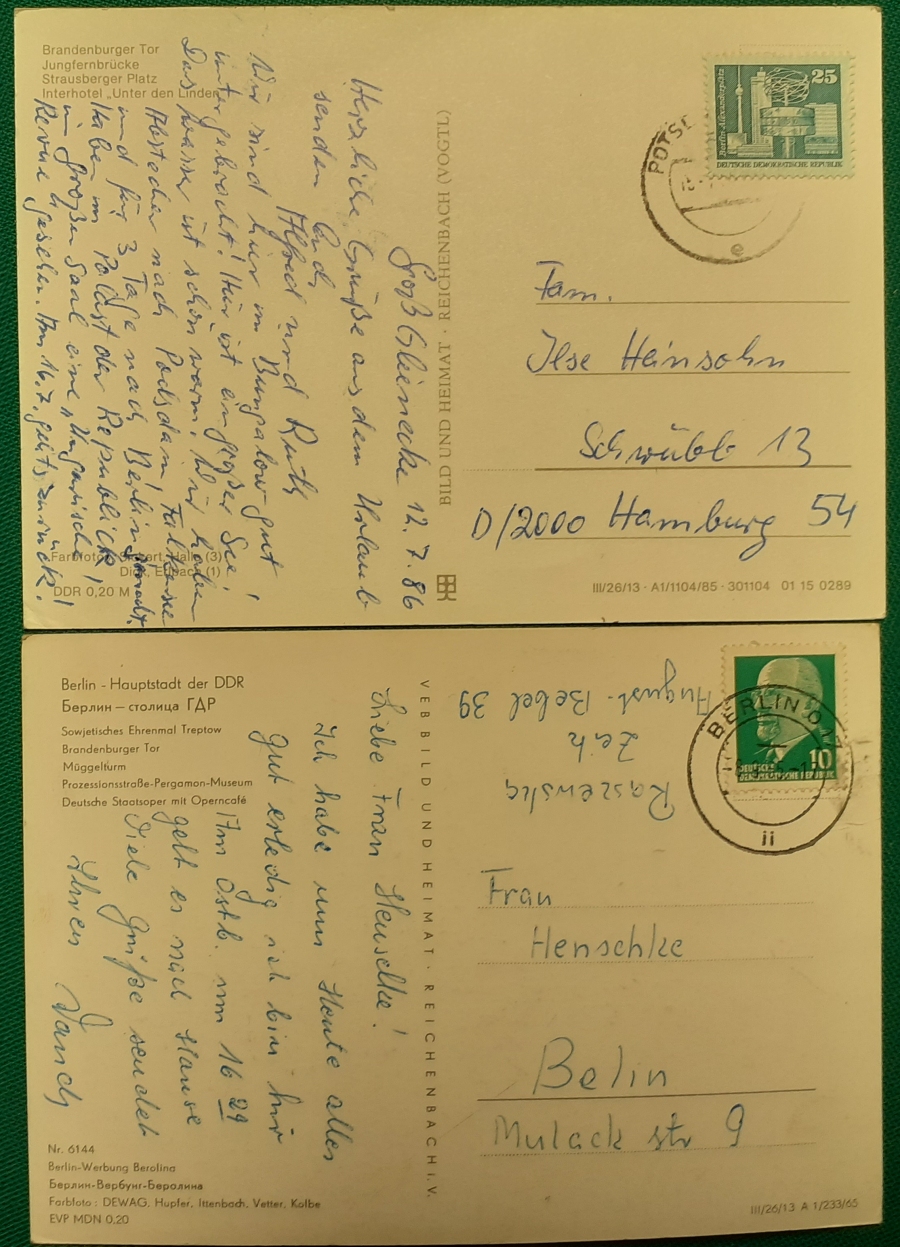 Brandenburger Tor
Jungfernbrücke
Strausberger Platz
Interhotel „Unter den Linden“
Groß Glienecke 12.7.86
Herzliche Grüße aus dem Urlaub
senden Euch
Alfred und Ruth
Wir sind hier im Bungalow gut
untergebracht! Hier ist ein großer See!
Das Wasser ist schön warm! Wir haben
Abstecher nach Potsdam, Falkensee
und für 3 Tage nach Berlin gemacht.
Haben im Palast der Republick,
im großen Saal eine „Ungarische
Revue gesehen. Am 16.7. geht's zurück!
Farbfotos: Halle (3)
(1)
DDR 0,20 M
BILD UND HEIMAT · REICHENBACH (VOGTL)
Berlin Alexanderplatz
25
DEUTSCHE DEMOKRATISCHE REPUBLIK
POTSD
e
Fam.
Ilse Heinsohn
Schwübb 13
D/2000 Hamburg 54
III/26/13 · A1/1104/85 · 301104 01 15 0289
Berlin - Hauptstadt der DDR
Берлин – столица ГДР
Sowjetisches Ehrenmal Treptow
Brandenburger Tor
Müggelturm
Prozessionsstraße-Pergamon-Museum
Deutsche Staatsoper mit Operncafé
Liebe Frau Henschke!
Ich habe nun Heute alles
gut erledig ich bin hir
Am Ostb. um 16 24
geht es nach Hause
Viele Grüße sendet
Ihnen
Nr. 6144
Berlin-Werbung Berolina
Берлин-Вербунг-Беролина
Farbfoto: DEWAG, Hupfer, Ittenbach, Vetter, Kolbe
EVP MDN 0,20
VEB BILD UND HEIMAT · REICHENBACH i. V.
August-Bebel 39
Zeih
Raszewska
10
DEUTSCHE
DEMOKRATISCHE REPUBLIK
BERLIN O
ii
Frau
Henschke
Belin
Mulack str 9
III/26/13 A 1/233/65